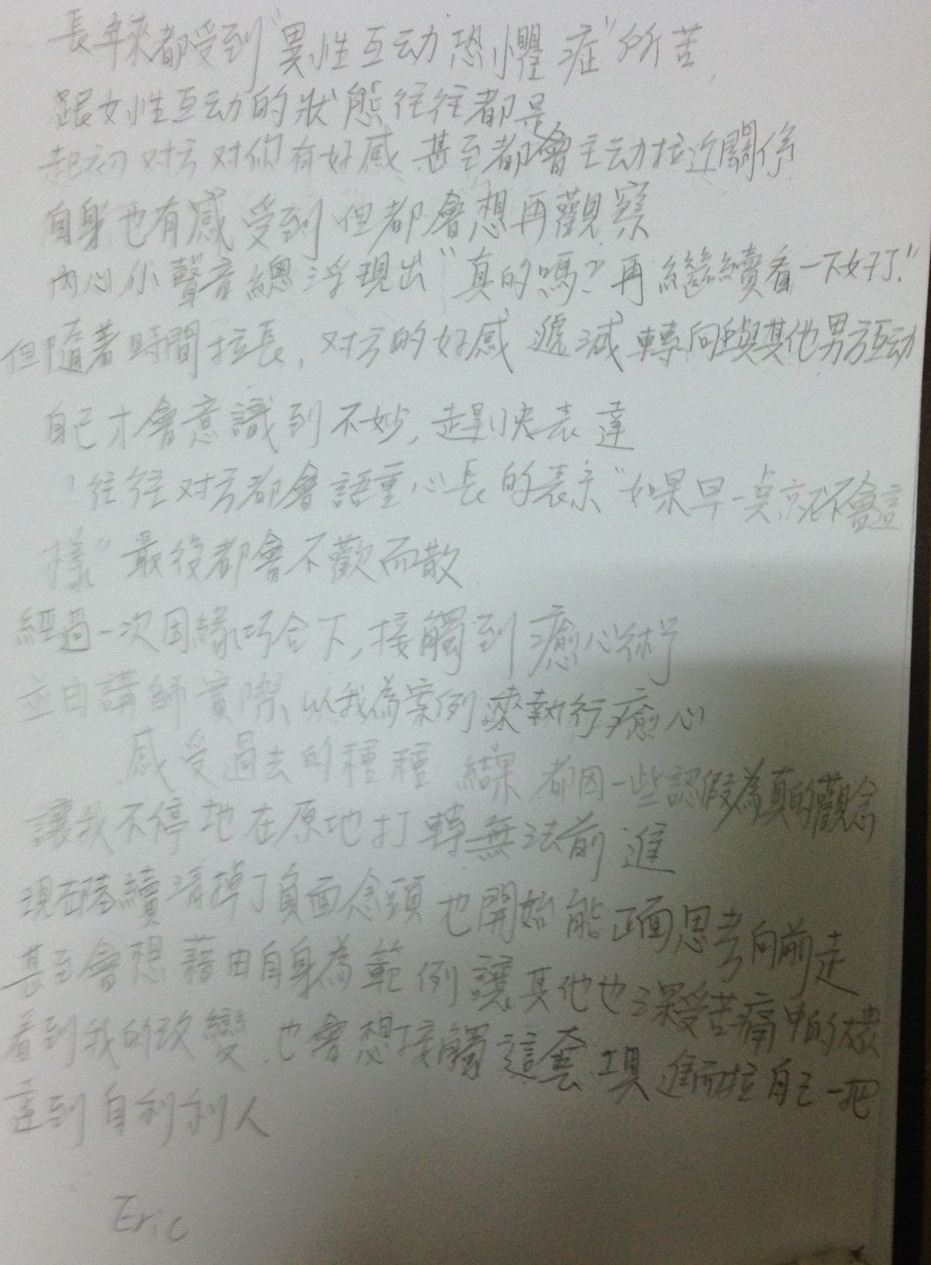 長年來都受到"異性互动恐懼症"所苦,
跟女性互动的狀態往往都是
起初对方对你有好感 甚至都會主动拉近關係
自身也有感受到但都會想再觀察
內心小聲音總浮現出"真的嗎?再繼續看一下好了"
但隨著時間拉長,对方的好感遞減轉向與其他男方互动
自己才會意識到不妙,趕快表達
往往对方都會語重心長的表示"如果早一點就不會這
樣"最後都會不歡而散
經過一次因緣巧合下,接觸到癒心術
並由講師實際以我為案例來執行癒心
感受過去的種種結果都因一些認假為真的觀念
讓我不停地在原地打轉無法前進
現在陸續清掉了負面念頭也開始能正面思考向前走
甚至會想藉由自身為範例讓其他也深受苦痛中的
看到我的改變,也會想接觸這套工具進而拉自己一把
達到自利利人
Eric